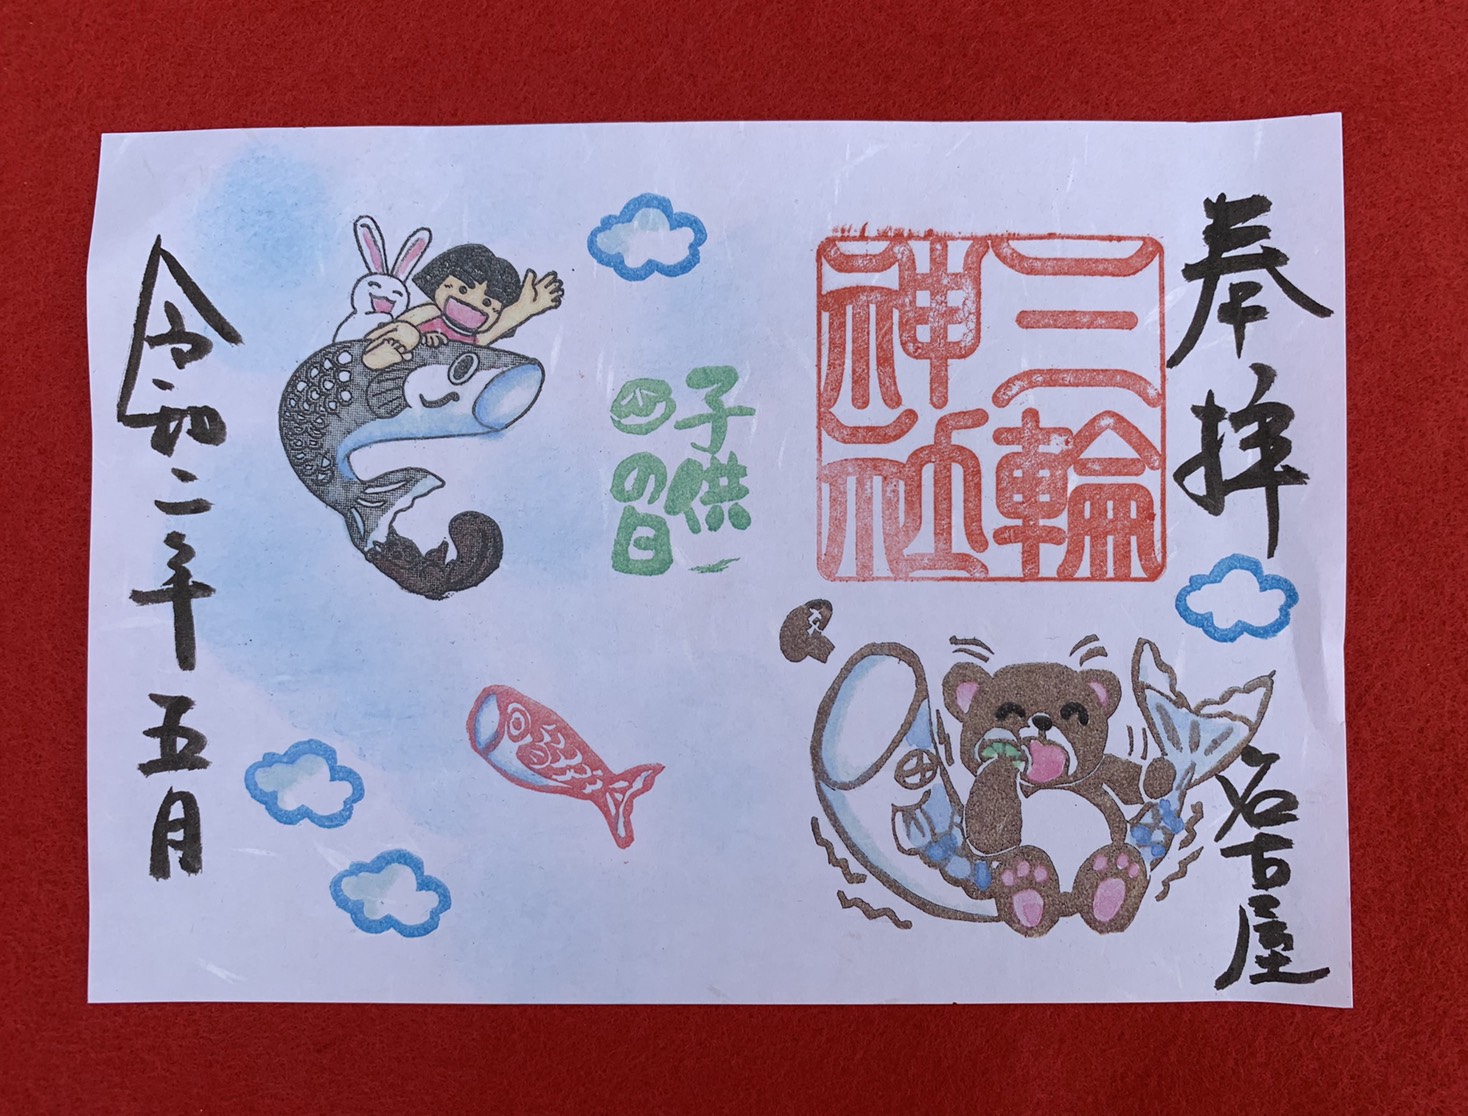 奉拝
名古屋
三輪
神社
子供
の日
令和二年五月